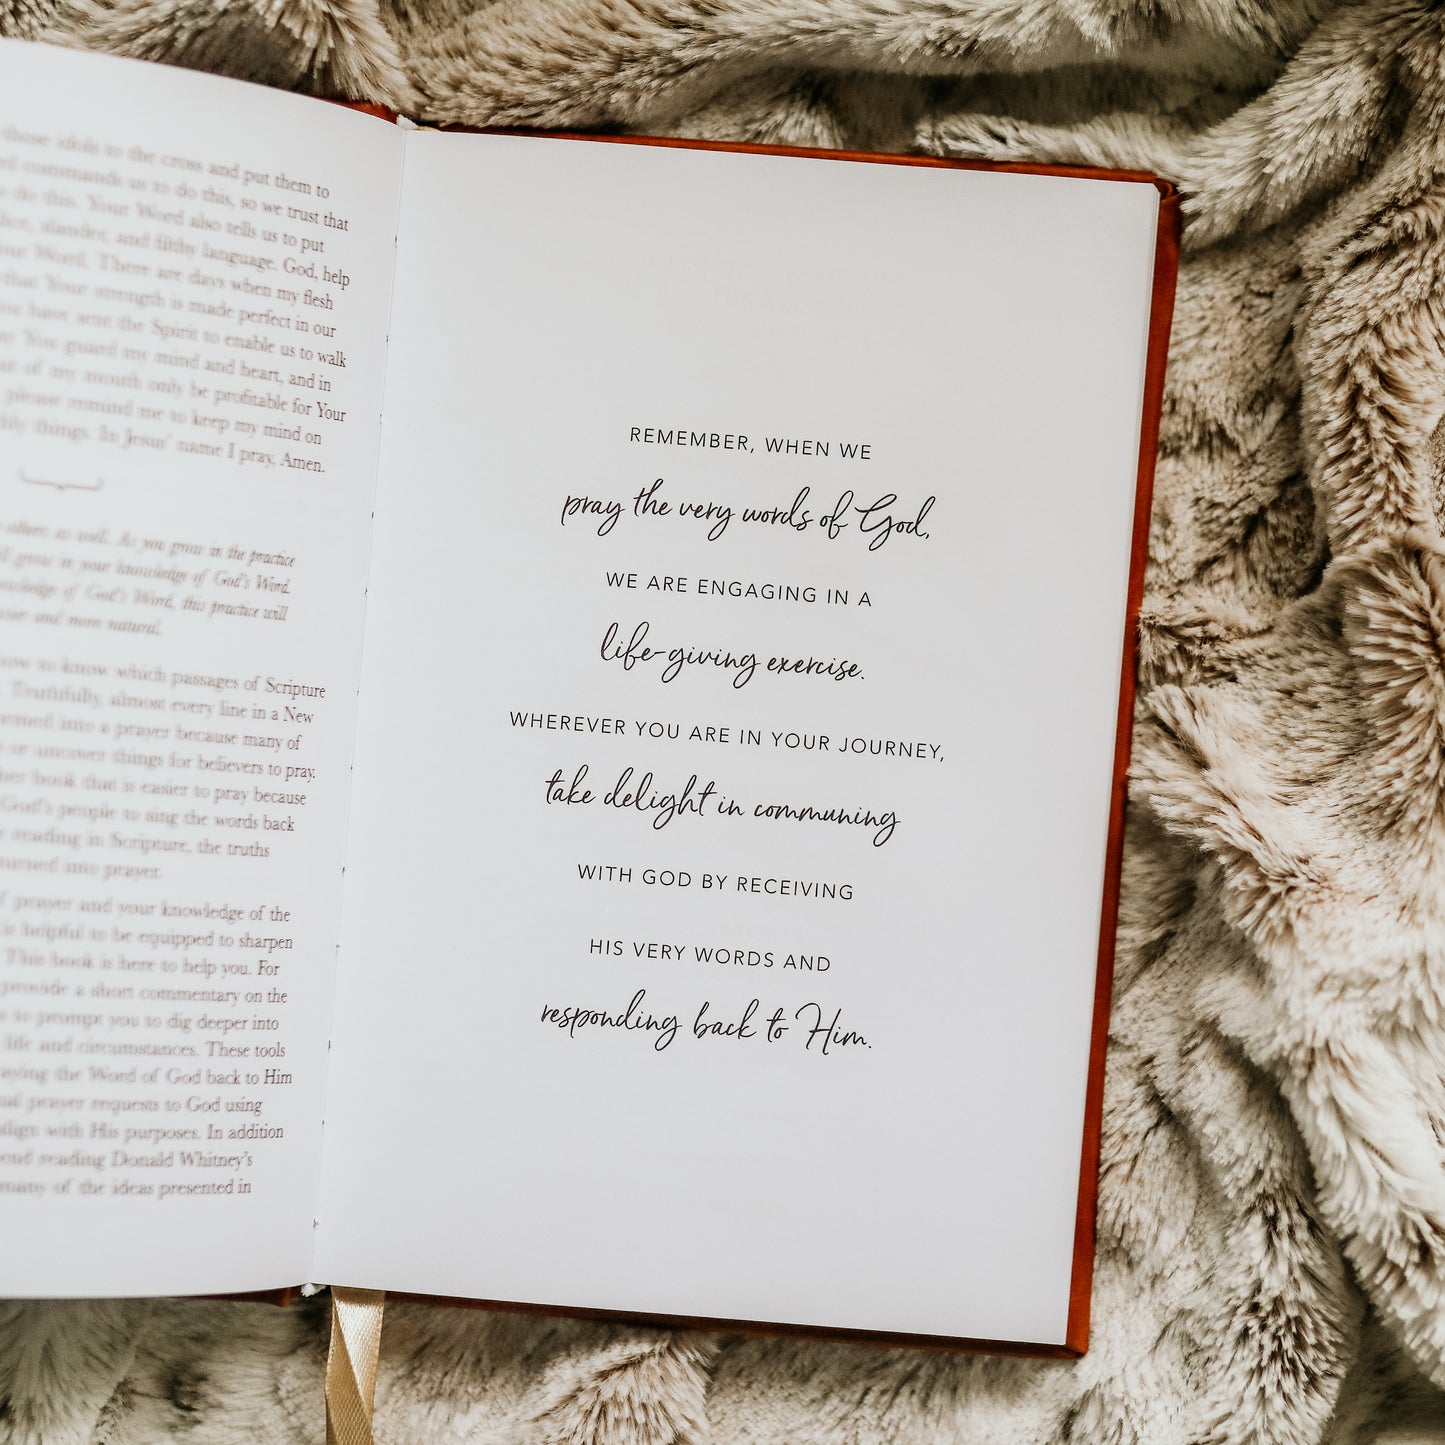 those idols to the cross and put them to
commands us to do this, so we trust that
do this. Your Word also tells us to put
slander, and filthy language. God, help
Word. There are days when my flesh
that Your strength is made perfect in our
have sent the Spirit to enable us to walk
You guard my mind and heart, and in
of my mouth only be profitable for Your
please remind me to keep my mind on
things. In Jesus' name I pray, Amen.
others as well. As you grow in the practice
grow in your knowledge of God's Word.
of God's Word, this practice will
and more natural.
how to know which passages of Scripture
Truthfully, almost every line in a New
into a prayer because many of
or uncover things for believers to pray.
book that is easier to pray because
God's people to sing the words back
reading in Scripture, the truths
turned into prayer.
of prayer and your knowledge of the
is helpful to be equipped to sharpen
This book is here to help you. For
provide a short commentary on the
to prompt you to dig deeper into
life and circumstances. These tools
the Word of God back to Him
prayer requests to God using
align with His purposes. In addition
reading Donald Whitney's
many of the ideas presented in
REMEMBER, WHEN WE
pray the very words of God,
WE ARE ENGAGING IN A
life-giving exercise.
WHEREVER YOU ARE IN YOUR JOURNEY,
take delight in communing
WITH GOD BY RECEIVING
HIS VERY WORDS AND
responding back to Him.